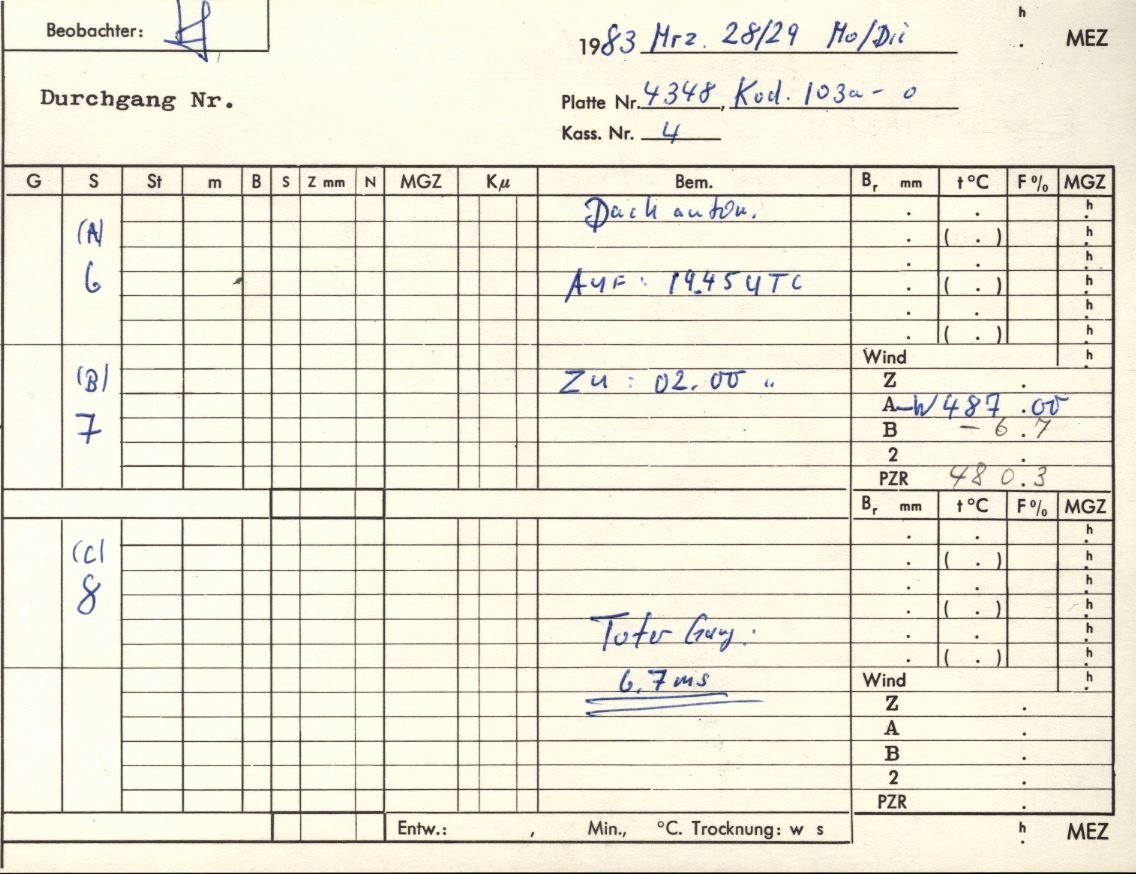 Beobachter:
1983 Mrz. 28/29 Mo/Di
h . MEZ
Durchgang Nr.
Platte Nr. 4348, Kod. 103a-o
Kass. Nr. 4
G S St m B S Z mm N MGZ Kµ Bem. Br mm t°C F% MGZ
Dach autom.
. . h
(A) . ( . ) h
. . h
6 Auf: 19.45 UTC . ( . ) h
. . h
. ( . ) h
Wind h
(B) Zu: 02.00 "
Z .
A-W 487.00
7 B -6.7
2 .
PZR 480.3
Br mm t°C F% MGZ
. . h
(C) . ( . ) h
. . h
8 . ( . ) h
Toter Gang: . . h
. ( . ) h
6,7ms Wind h
Z .
A .
B .
2 .
PZR .
Entw.: , Min., °C. Trocknung: w s
h . MEZ